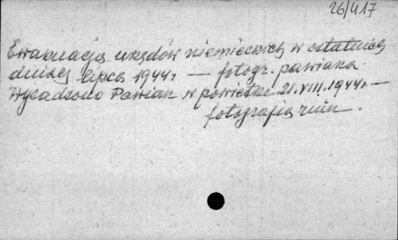 26/417
Ewakuacja urzędów niemieckich w ostatnich
dniach lipca 1944 r — fotogr. pawiaka
Wysadzono Pawiak w powietrze 21.VIII.1944 r. —
fotografia ruin.